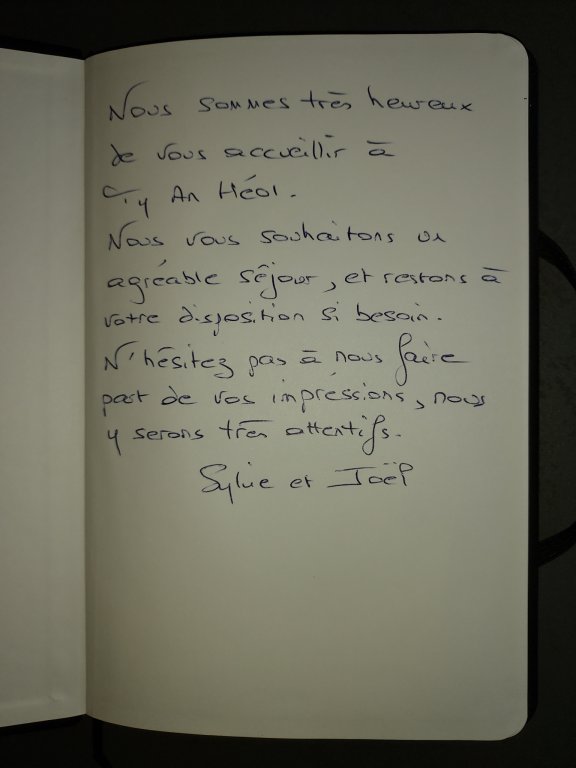 Nous sommes très heureux
de vous accueillir à
Ty An Héol.
Nous vous souhaitons un
agréable séjour, et restons à
votre disposition si besoin.
N'hésitez pas à nous faire
part de vos impressions, nous
y serons très attentifs.
Sylvie et Joël